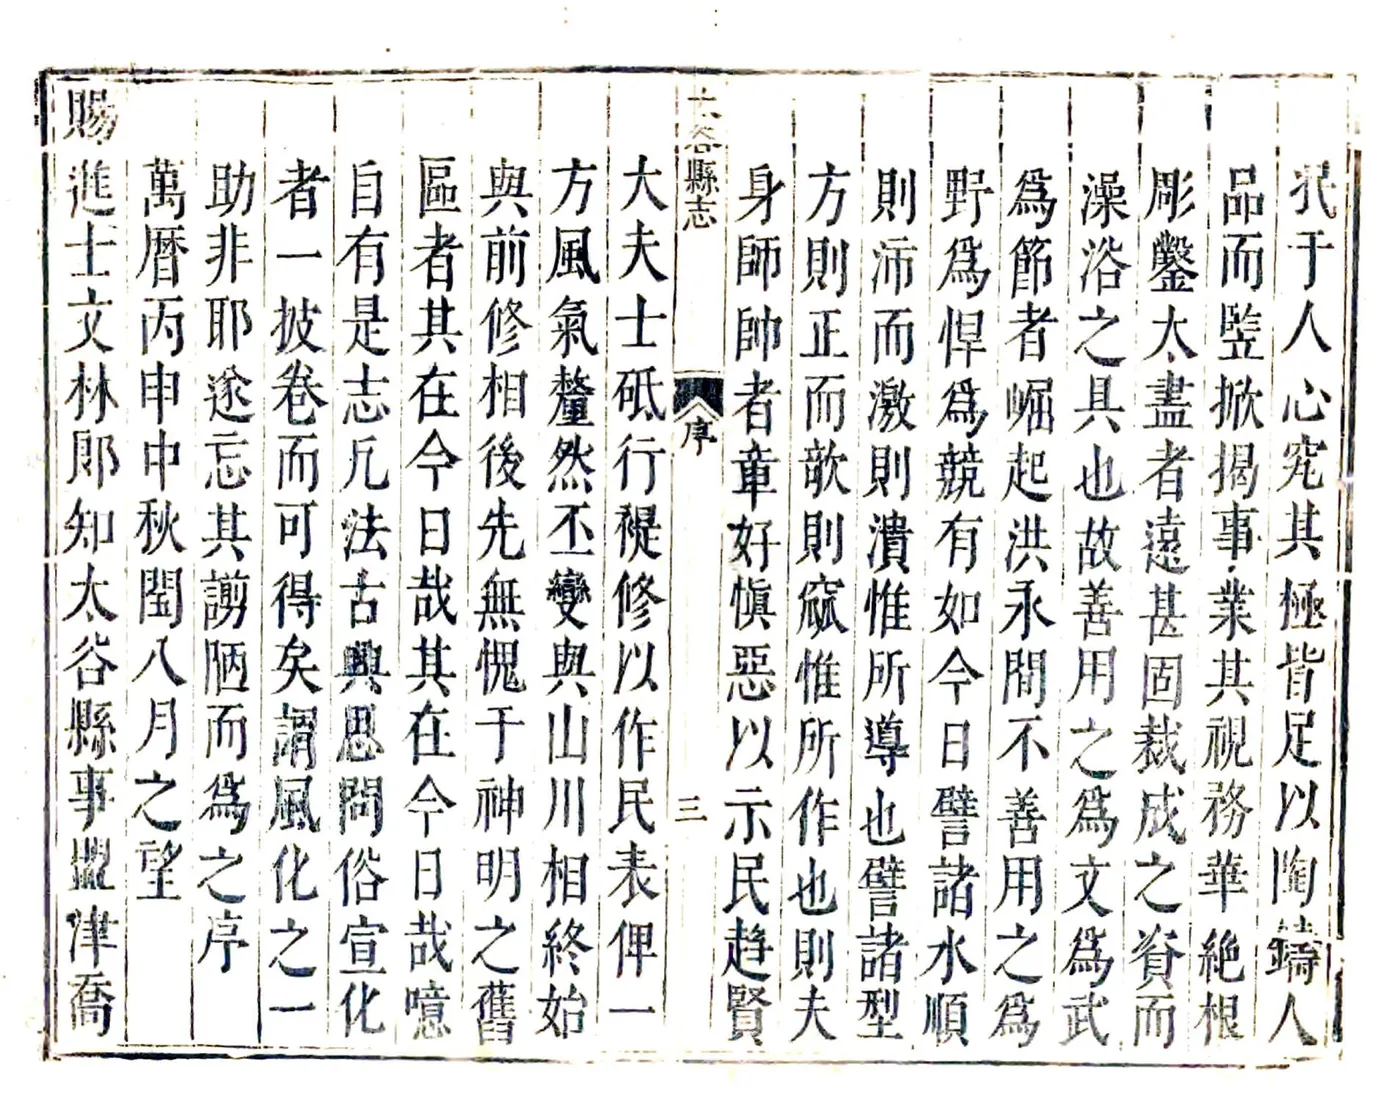 于人心究其極皆足以陶鑄人
品而豎掀揭事業其視務華絶根
彫鑿太盡者遠甚固裁成之資而
澡浴之具也故善用之爲文爲武
爲節者崛起洪永間不善用之爲
野爲悍爲競有如今日譬諸水順
則沛而激則潰惟所導也譬諸型
方則正而欹則窳惟所作也則夫
身師帥者章好愼惡以示民趋賢
太谷縣志
序
三
大夫士砥行禔修以作民表俾一
方風氣釐然丕變與山川相終始
與前修相後先無愧于神明之舊
區者其在今日哉其在今日哉噫
自有是志凡法古興思問俗宣化
者一披卷而可得矣謂風化之一
助非耶遂忘其謭陋而爲之序
萬曆丙申中秋閏八月之望
賜進士文林郎知太谷縣事盟津喬